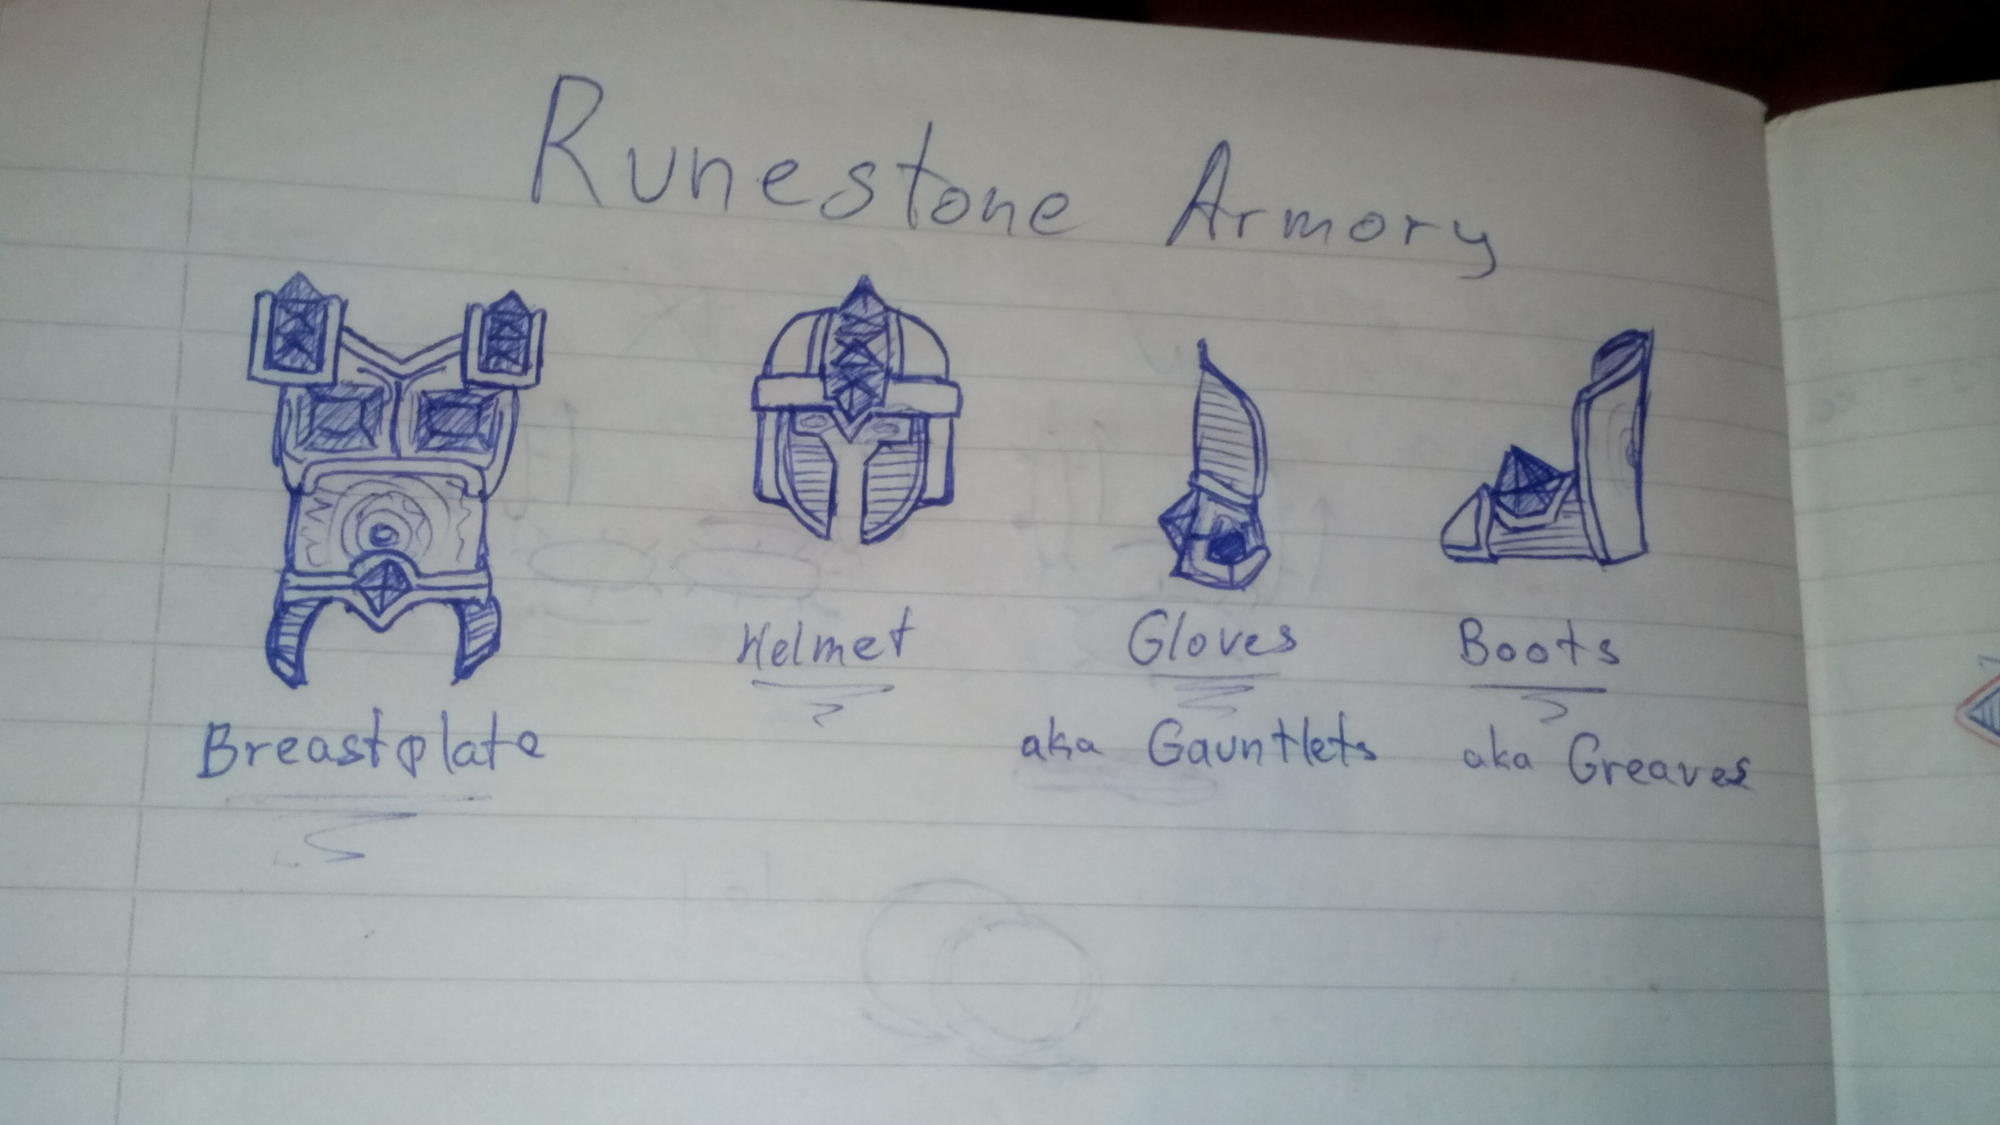 Runestone Armory
Breastplate
Helmet
Gloves
aka Gauntlets
Boots
aka Greaves